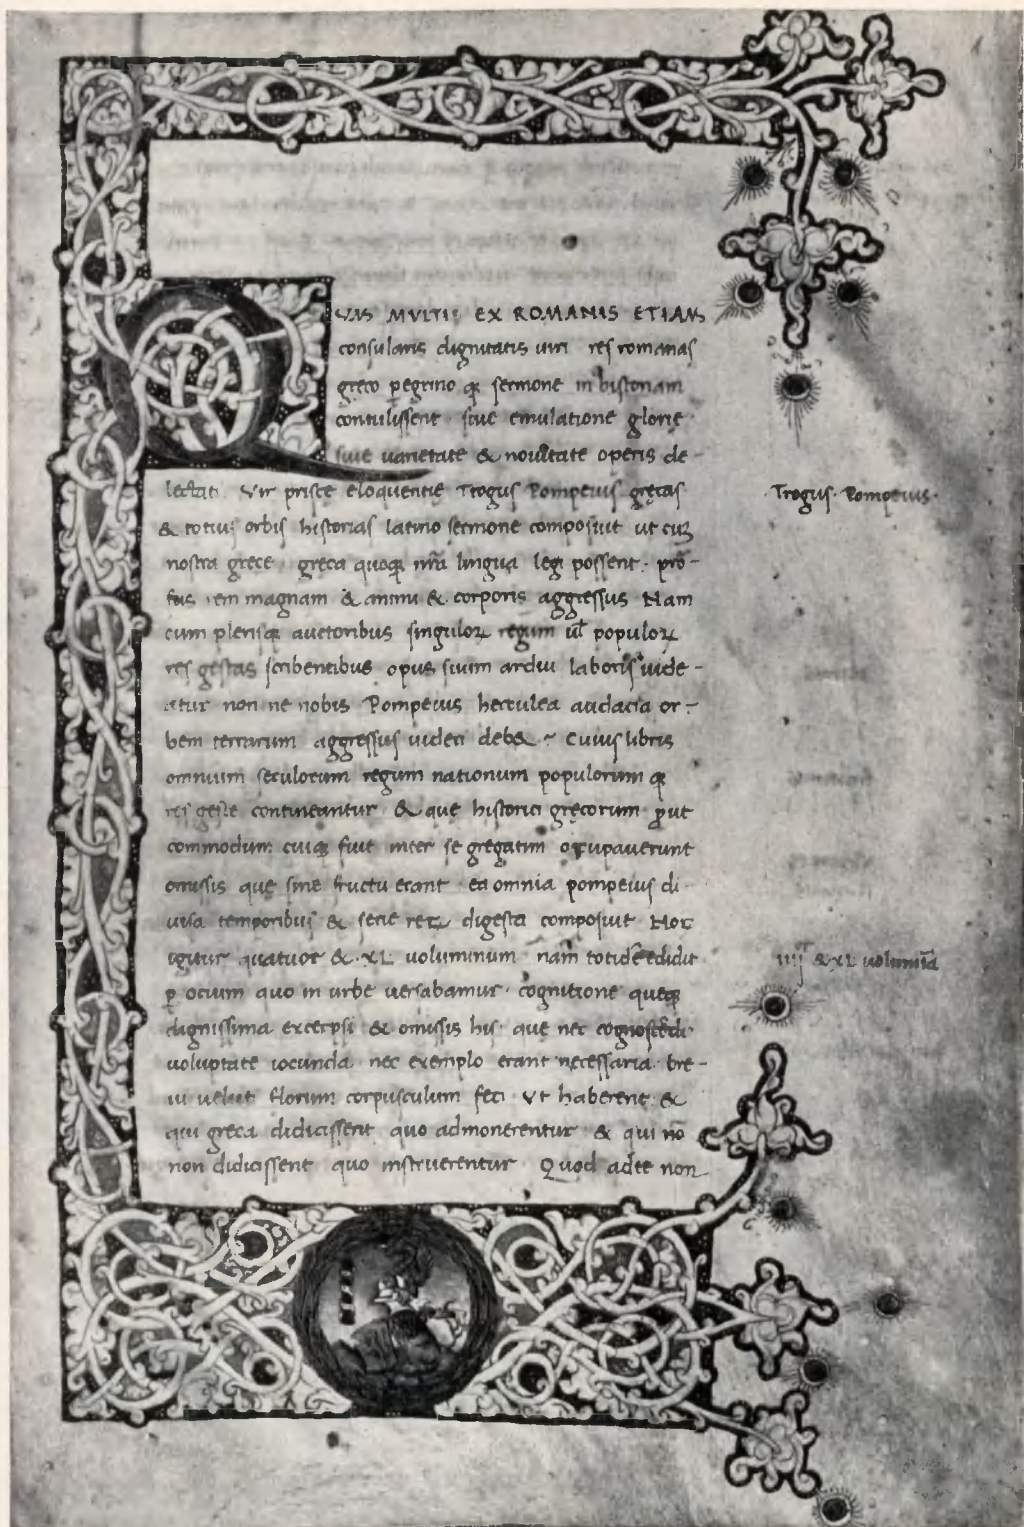 QVM MVLTI EX ROMANIS ETIAM
consularis dignitatis uiri res romanas
greco pegrino q; sermone in historiam
contulissent · siue emulatione glorie
siue uarietate & nouitate operis de-
lectati Vir prisce eloquentie Trogus Pompeius grecas
& totius orbis historias latino sermone composuit ut cuz
nostra grece greca quoq; nr̄a lingua legi possent · pro-
fus rem magnam & animi & corporis aggressus Nam
cum plerisq; auctoribus singuloꝝ regum ul̄ populoꝝ
res gestas scribentibus opus suum ardui laboris uide-
atur non ne nobis Pompeius herculea audacia or-
bem terrarum aggressus uideri deb& ~ Cuius libris
omnium seculorum regum nationum populorum q;
res geste contineantur & que historici grecorum ꝓut
commodum cuiq; fuit inter se gregatim occupauerunt
omissis que sine fructu erant ea omnia pompeius di
uisa temporibus & serie reꝝ digesta composuit Hoc
igitur quatuor & · XL uoluminum nam totidē edidit
ꝑ ocium quo in urbe uersabamur · cognitione queq;
dignissima excerpsi & omissis his · que nec cognoscēdi
uoluptate iocunda · nec exemplo erant necessaria · bre-
ui uelut florum corpusculum feci Vt haberent &
qui greca didicissent quo admonerentur & qui nō
non didicissent quo instruerentur Quod ad te non
· Trogus · Pompeius ·
iiij & XL uolumīa